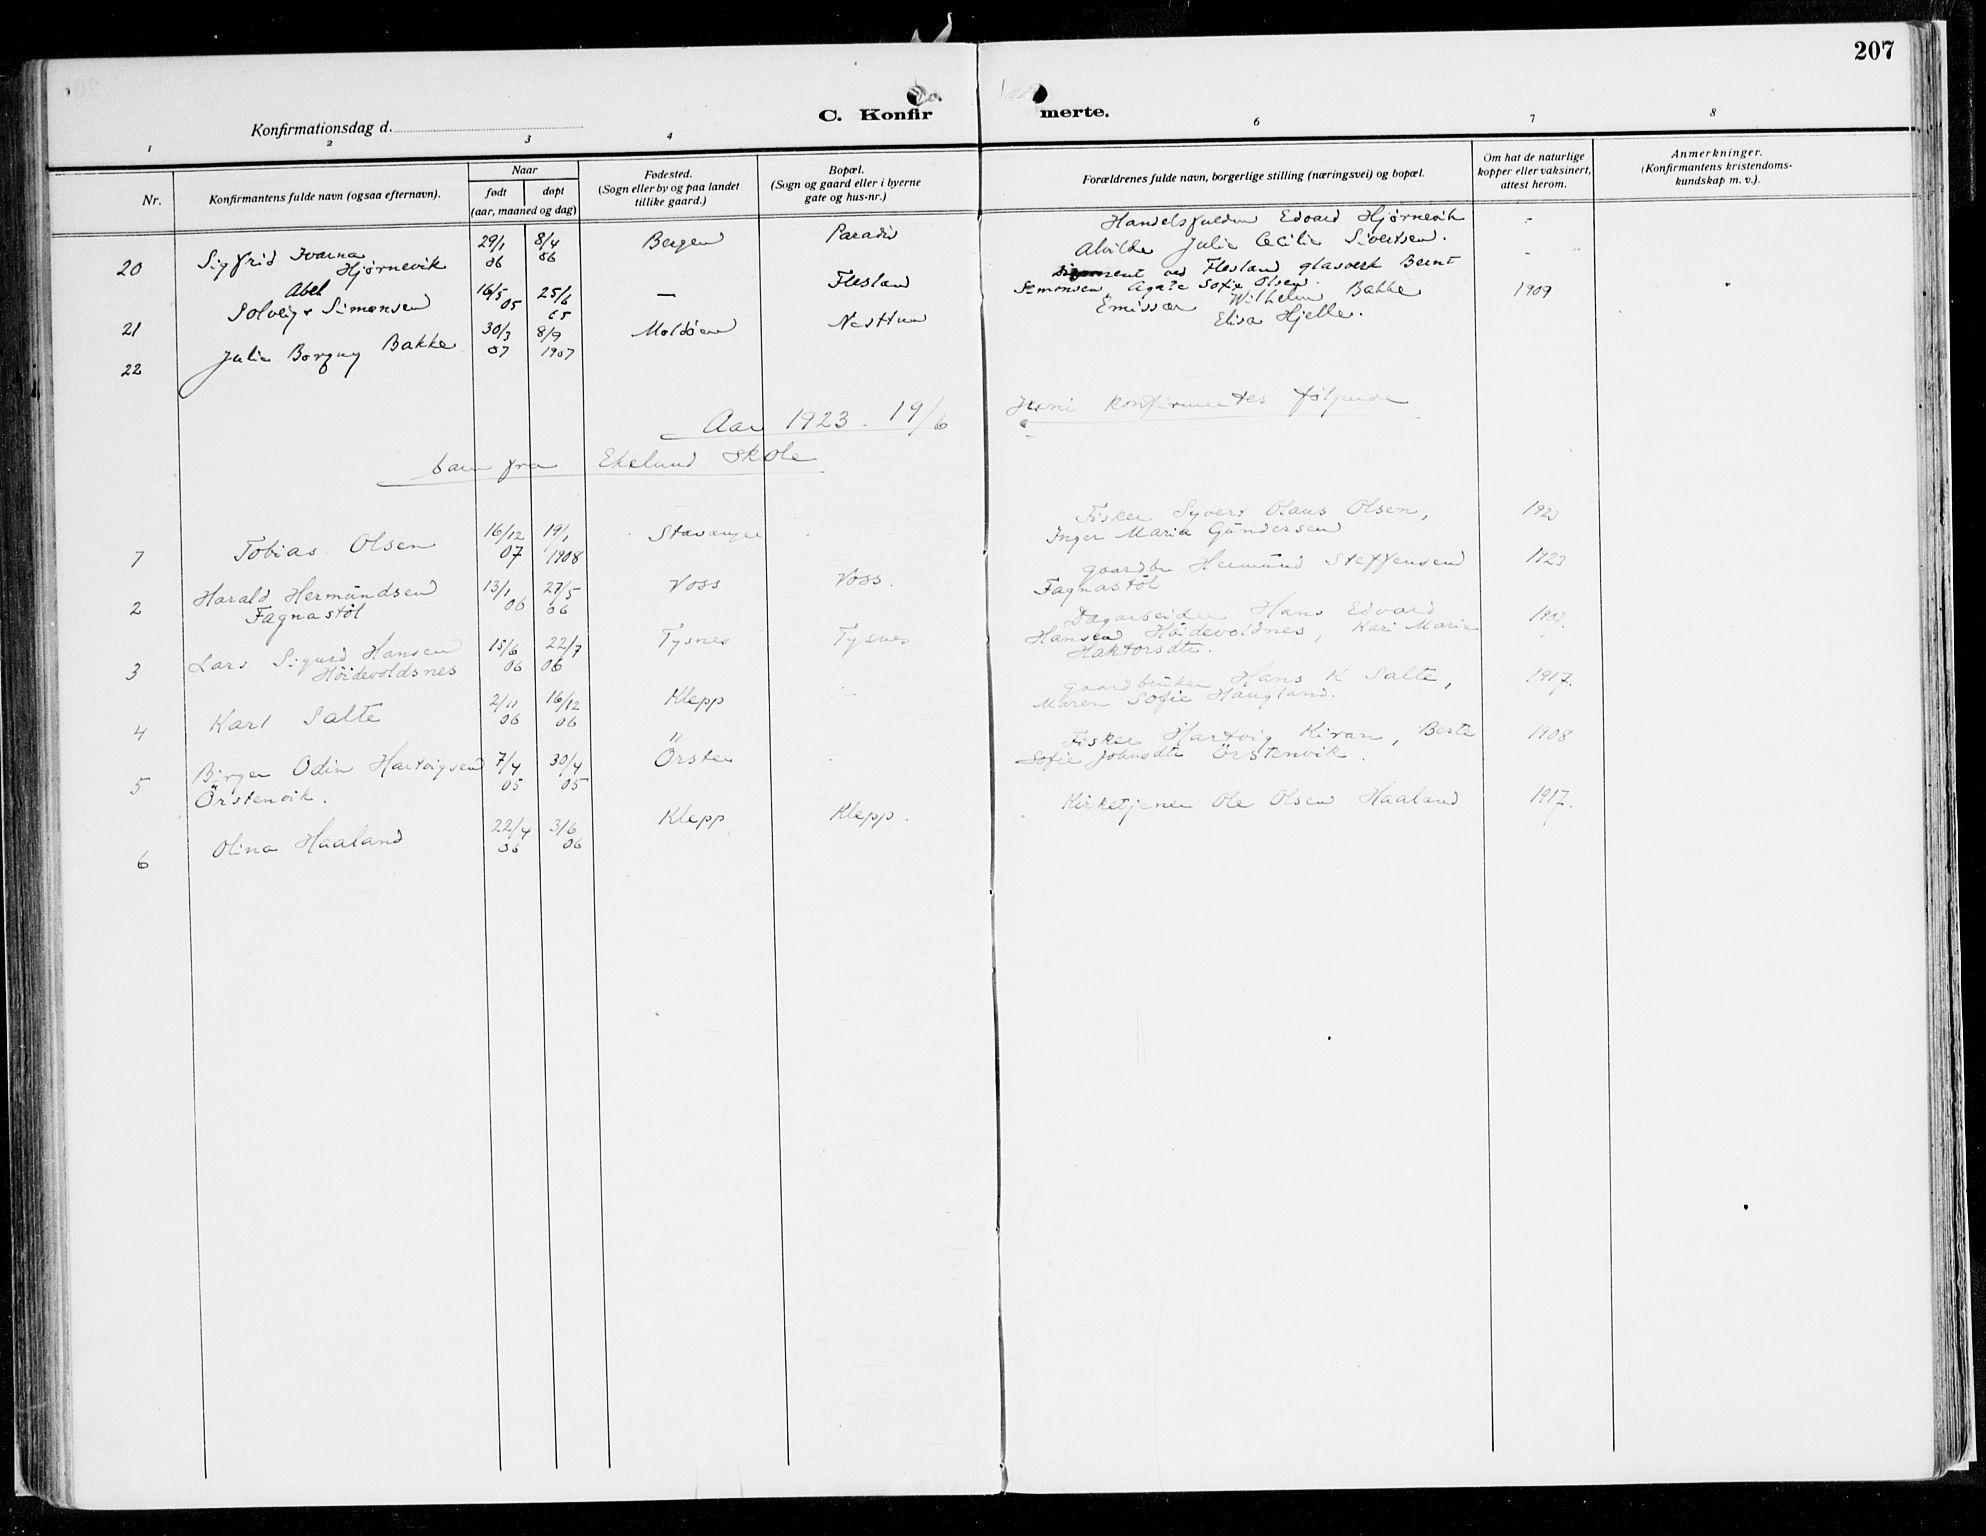 207
C. Konfirmerte.
Konfirmationsdag d.
1 2 3 4 6 7 8
Nr.
Konfirmantens fulde navn (ogsaa efternavn).
Naar
født døpt
(aar, maaned og dag)
Fødested.
(Sogn eller by og paa landet
tillike gaard.)
Bopæl.
(Sogn og gaard eller i byerne
gate og hus-nr.)
Forældrenes fulde navn, borgerlige stilling (næringsvei) og bopæl.
Om hat de naturlige
kopper eller vaksinert,
attest herom.
Anmerkninger.
(Konfirmantens kristendoms-
kundskap m. v.).
20 Sigfrid Ivarna Hjørnevik 29/1 06 8/4 06 Bergen Paradis
Edvard Hjørnevik
Alvilde Julie Cecilie Sivertsen.
21 Abel Solveig Simonsen 16/5 05 25/6 05 — Flesland
ved Flesland glasverk Bernt
Simonsen Agate Sofie Olsen.
22 Julie Borgny Bakke 30/3 07 8/9 1907 Moldøen Nesttun
Emissær Wilhelm Bakke 1909
Elisa Hjelle.
Aar 1923 - 19/6 Juni konfirmertes følgende
barn fra Ekelund Skole
1 Tobias Olsen 16/12 07 19/1 1908 Stavanger
Fisker Syvert Olaus Olsen, 1923
Inger Maria Gundersen
2 Harald Hermundsen 13/1 06 27/5 06 Voss Voss.
Fagnastøl
gaardbr Hermund Steffensen 1923
Fagnastøl
3 Lars Sigurd Hansen 15/6 06 22/7 06 Tysnes Tysnes
Høidevoldsnes
Dagarbeider Hans Edvard 1907.
Hansen Høidevoldnes, Kari Marie
Haktorsdtr.
4 Karl Salte 2/11 06 16/12 06 Klepp
gaardbruker Hans K Salte, 1917.
Maren Sofie Haugland.
5 Birger Odin Hartvigsen 7/4 05 30/4 05 Örsten
Örstenvik.
Fisker Hartvig Kiran, Berte 1908
Sofie Johnsdtr Örstenvik.
6 Olina Haaland 22/4 06 3/6 06 Klepp Klepp.
Kirketjener Ole Olsen Haaland 1917.